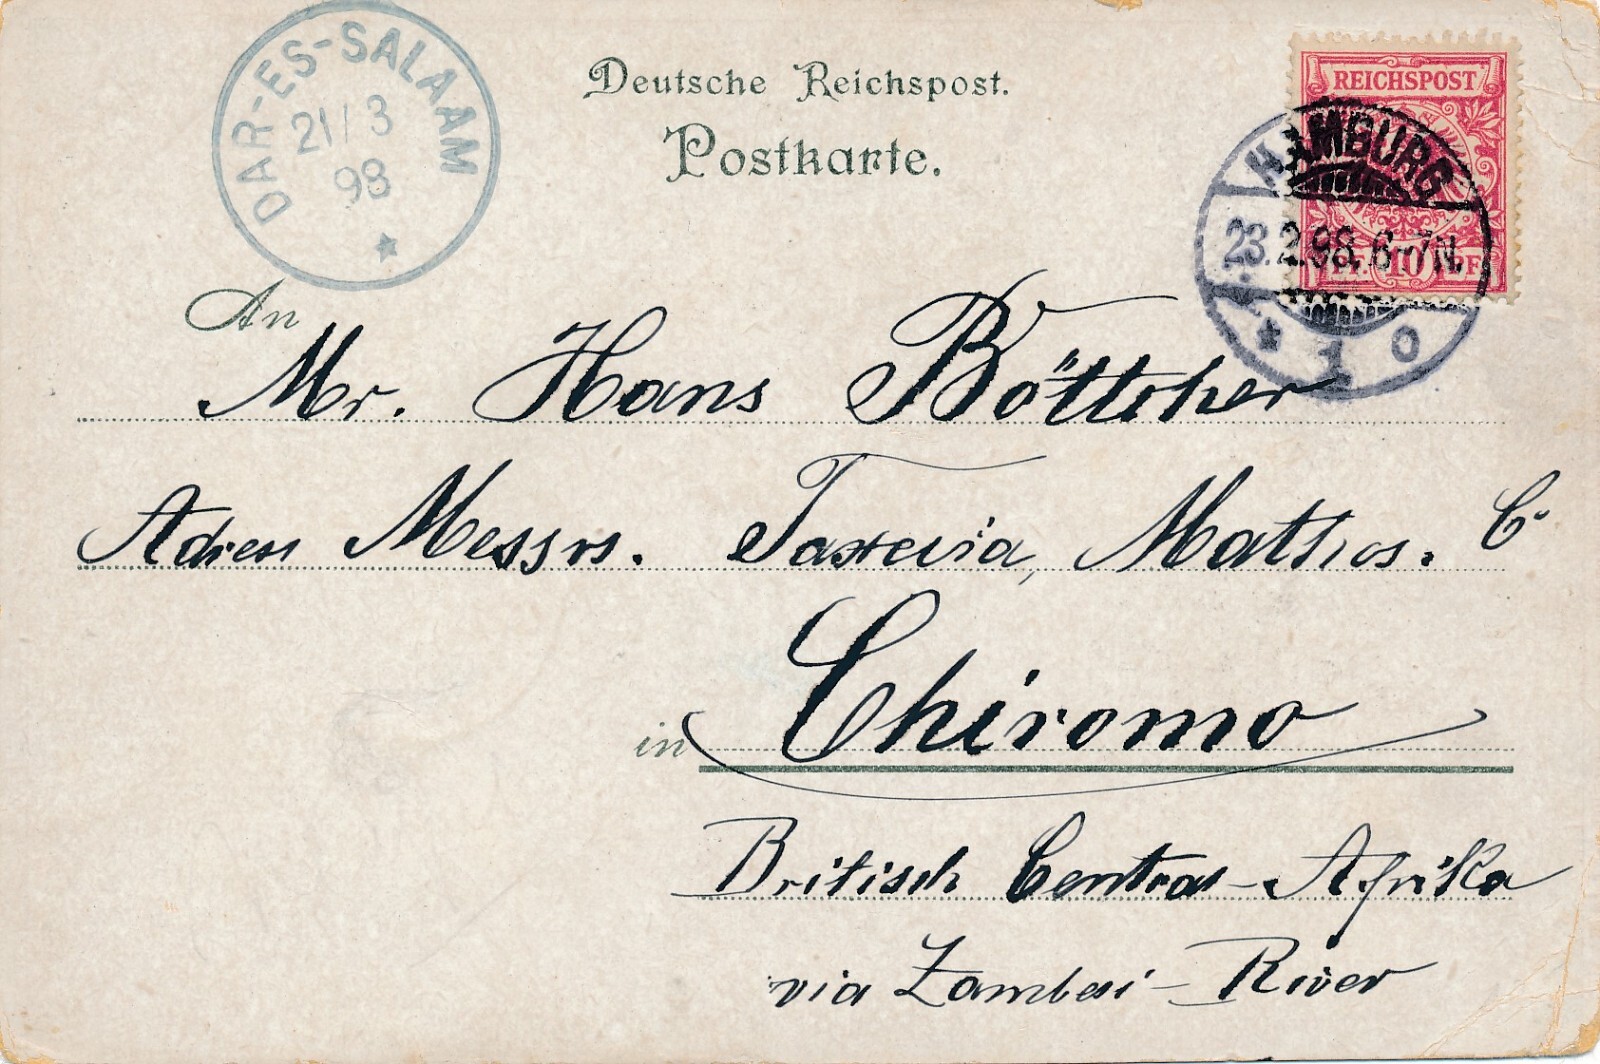 DAR-ES-SALAAM
21/3
98
Deutsche Reichspost.
Postkarte.
REICHSPOST
10 PF
HAMBURG
23.2.98. 6-7N.
* 1 o
An
Mr. Hans Böttcher
Adress Messrs. Taxevia, Mathos. C
in Chiromo
Britisch Central-Afrika
via Zambesi-River